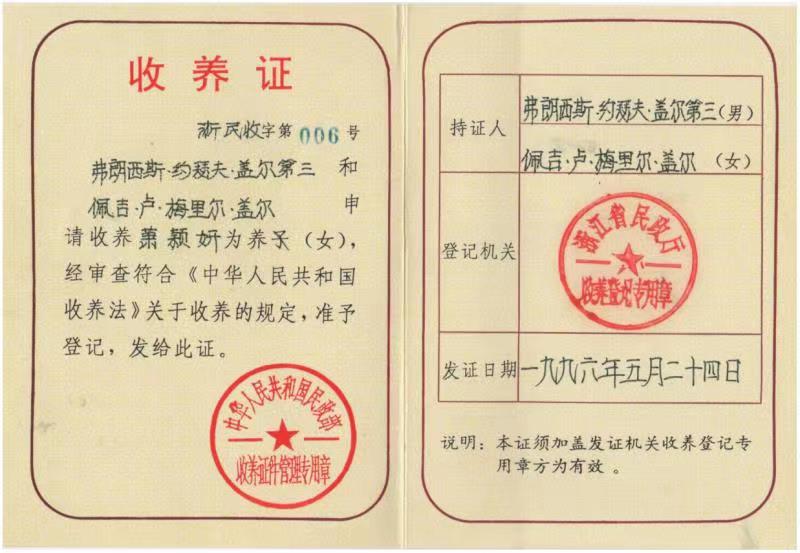 收养证
浙民收字第 006 号
弗朗西斯·约瑟夫·盖尔第三 和
佩吉·卢·梅里尔·盖尔 申
请收养萧颖妍为养子(女),
经审查符合《中华人民共和国
收养法》关于收养的规定,准予
登记,发给此证。
中华人民共和国民政部
收养证件管理专用章
持证人
弗朗西斯·约瑟夫·盖尔第三(男)
佩吉·卢·梅里尔·盖尔 (女)
登记机关
浙江省民政厅
收养登记专用章
发证日期
一九九六年五月二十四日
说明:本证须加盖发证机关收养登记专
用章方为有效。